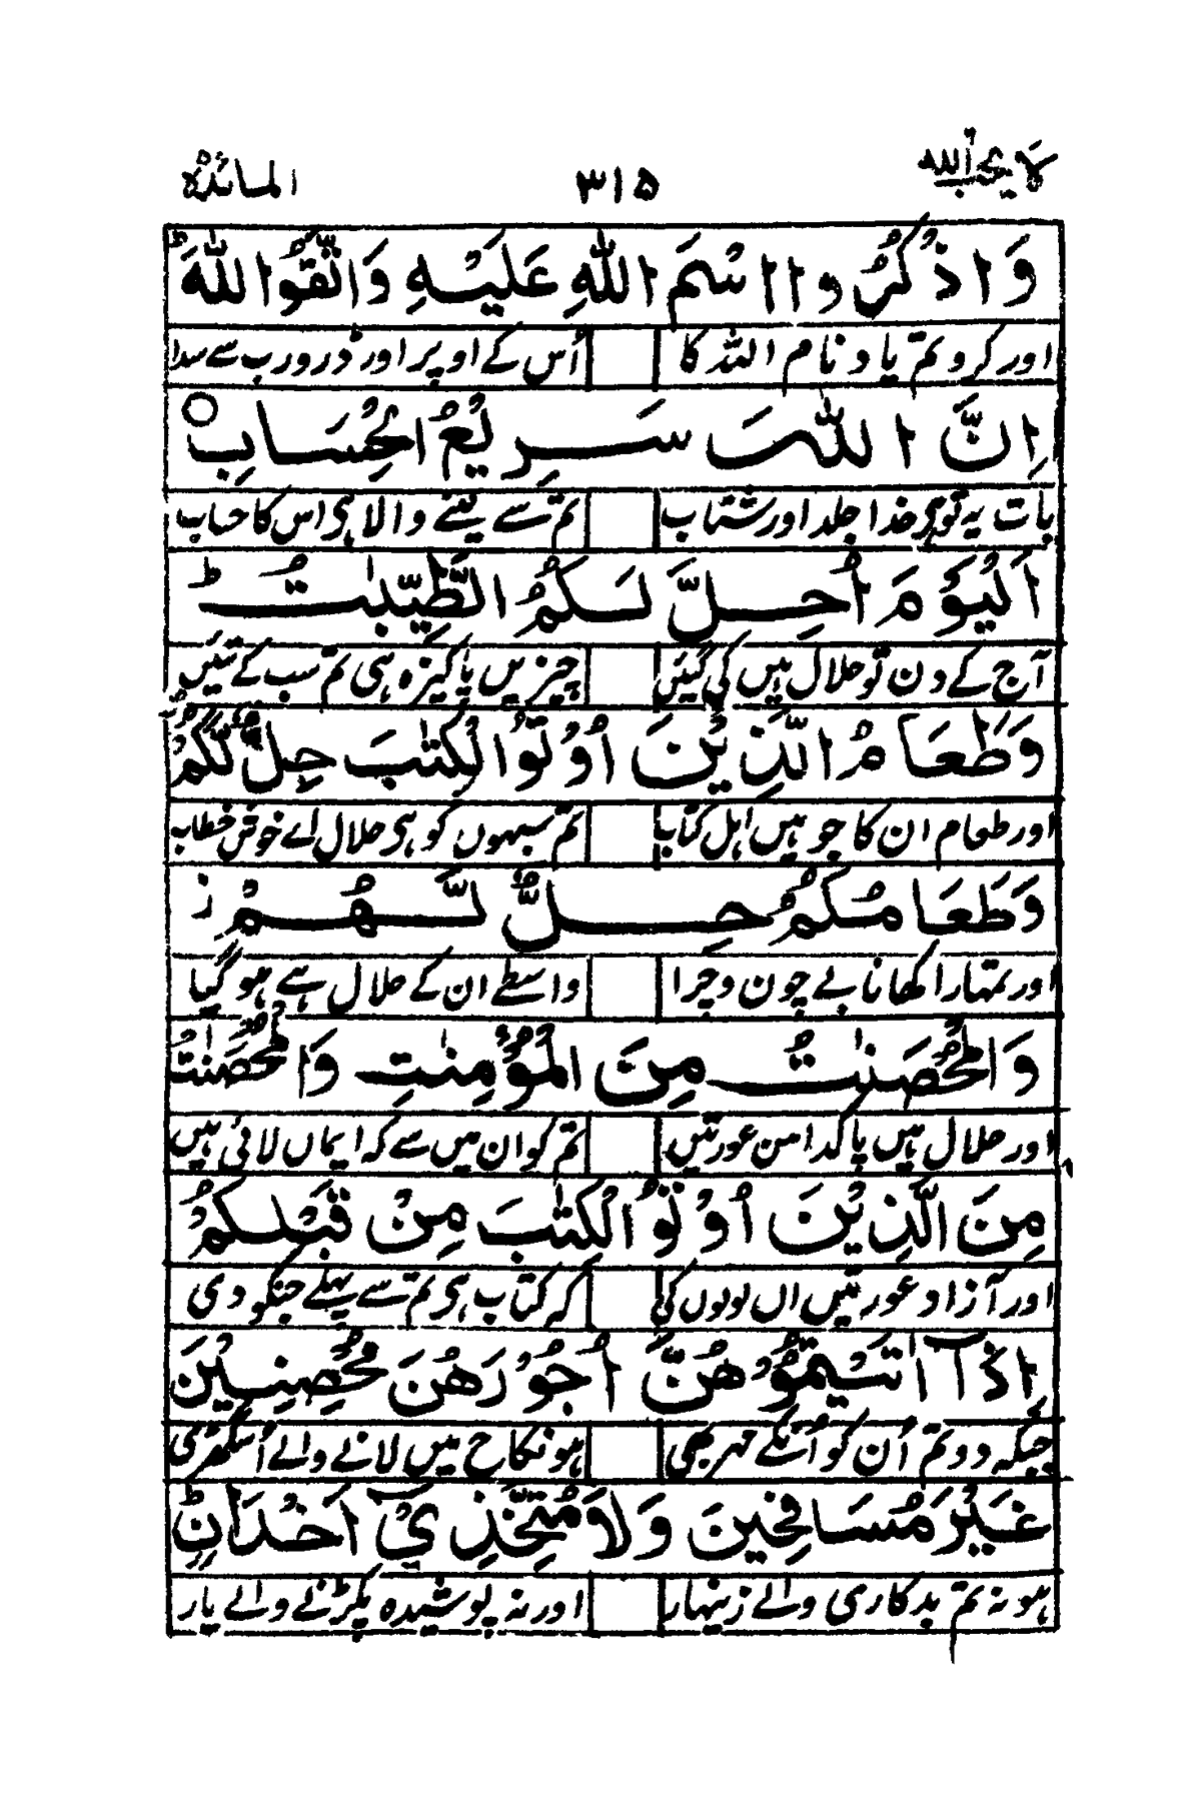 لا یحب الله ۳۱۵ المائدۃ
وَاذْکُرُوا اسْمَ اللّٰهِ عَلَیْهِ وَاتَّقُوا اللّٰهَ ؕ
اور کرو تم یاد نام اللہ کا اُس کے اوپر اور ڈرو رب سے سدا
اِنَّ اللّٰهَ سَرِیْعُ الْحِسَابِ ○
بات یہ تو ہی خدا جلد اور شتاب تم سے لینے والا ہی اس کا حساب
اَلْیَوْمَ اُحِلَّ لَکُمُ الطَّیِّبٰتُ ؕ
آج کے دن تو حلال ہیں کی گئیں چیزیں پاکیزہ ہی تم سب کے تئیں
وَطَعَامُ الَّذِیْنَ اُوْتُوا الْکِتٰبَ حِلٌّ لَّکُمْ
اور طعام ان کا جو ہیں اہل کتاب تم سبہوں کو ہی حلال اے خوش خطاب
وَطَعَامُکُمْ حِلٌّ لَّهُمْ ز
اور تمہارا کھانا بے چون و چرا واسطے ان کے حلال ہے ہو گیا
وَالْمُحْصَنٰتُ مِنَ الْمُؤْمِنٰتِ وَالْمُحْصَنٰتُ
اور حلال ہیں پاکدامن عورتیں تم کو ان میں سے کہ ایماں لائی ہیں
مِنَ الَّذِیْنَ اُوْتُوا الْکِتٰبَ مِنْ قَبْلِکُمْ
اور آزاد عورتیں ان لوگوں کی کہ کتاب ہی تم سے پہلے جنکو دی
اِذَاۤ اٰتَیْتُمُوْهُنَّ اُجُوْرَهُنَّ مُحْصِنِیْنَ
جبکہ دو تم اُن کو اُنکے مہر بھی ہو نکاح میں لانے والے اُس گھڑی
غَیْرَ مُسَافِحِیْنَ وَلَا مُتَّخِذِیْۤ اَخْدَانٍ ؕ
ہو نہ تم بدکاری والے زینہار اور نہ پوشیدہ پکڑنے والے یار